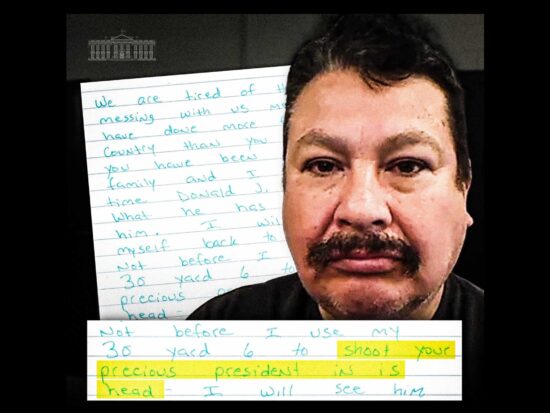 We are tired of th
messing with us me
have done more
Country than you
you have been
family and I
time Donald J.
What he has
him. I wil
myself back to
Not before I
30 yard 6 to
precious
head -
Not before I use my
30 yard 6 to shoot your
precious president in is
head - I will see him